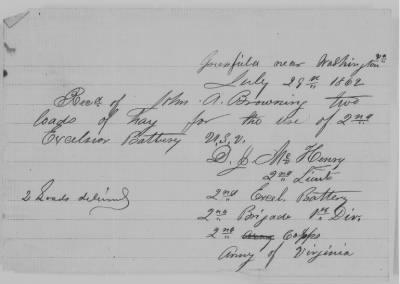 Greenfield near Washington
July 29th 1862
Recd of John A. Browning two
loads of hay for the use of 2nd
Excelsior Battery U.S.V.
D. J. McHenry
2nd Lieut
2 Loads delivered
2nd Excel. Battery
2nd Brigade 1st Div.
2nd Army Corps
Army of Virginia